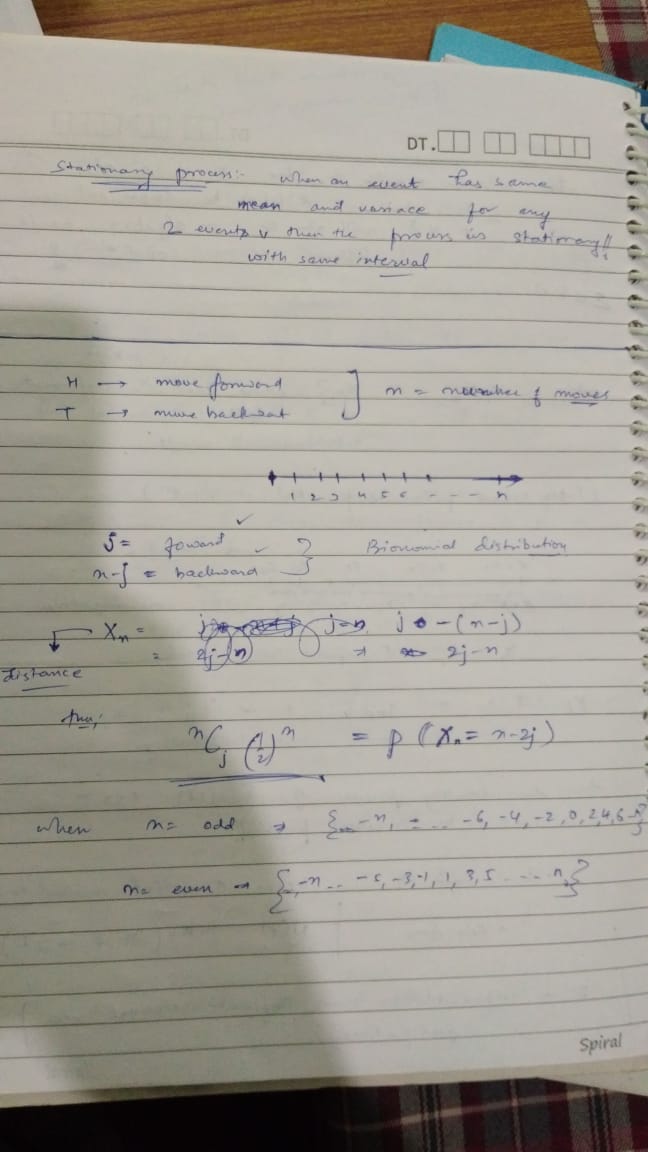 DT.
Stationary process:- when an event has same
mean and variace for any
2 events then the process is stationary!!
with same interval
H → move forward
T → move backwat
n = number of moves
1 2 3 4 5 6 - - - n
j = foward
n-j = backward
Bionomial distribution
Xn = j - (n-j)
= 2j-n ⇒ 2j-n
distance
thus,
ⁿCⱼ (1/2)ⁿ = p (Xn = n-2j)
when n = odd ⇒ {-n, - .. -6, -4, -2, 0, 2, 4, 6 -n}
n = even → {-n .. -5, -3, -1, 1, 3, 5 .... n}
Spiral